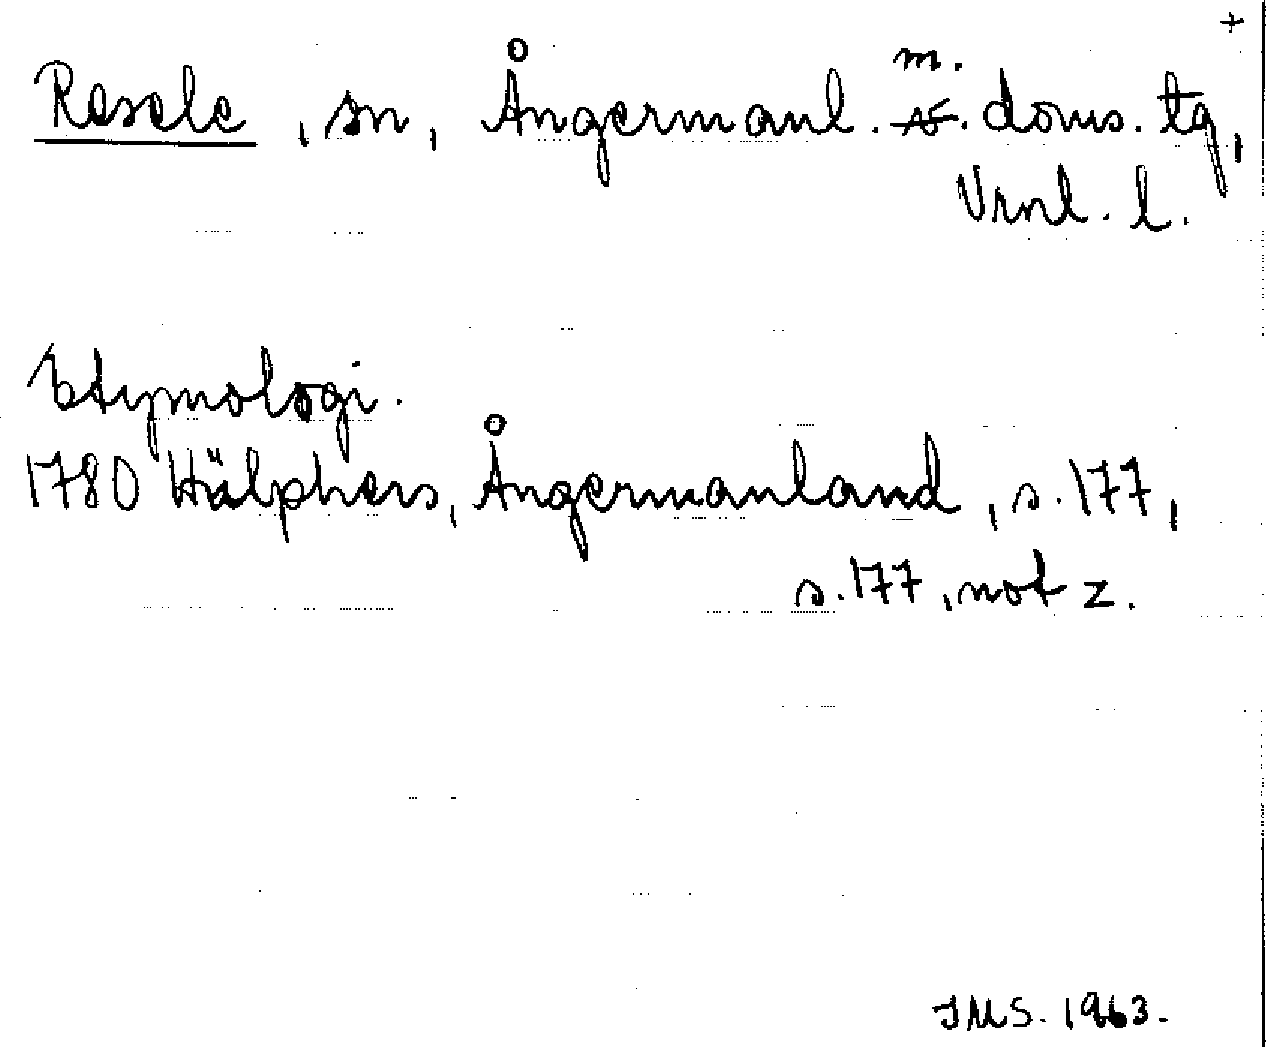 +
Resele, sn, Ångermanl. m. doms. tg,
Vrnl. l.
Etymologi.
1780 Hülphers, Ångermanland, s. 177,
s. 177, not z.
JMS. 1963.